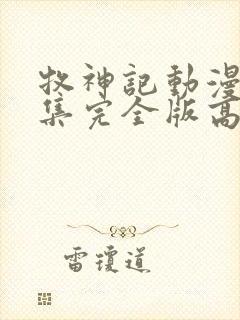 牧神記動漫
集完全版高
雷瓊道